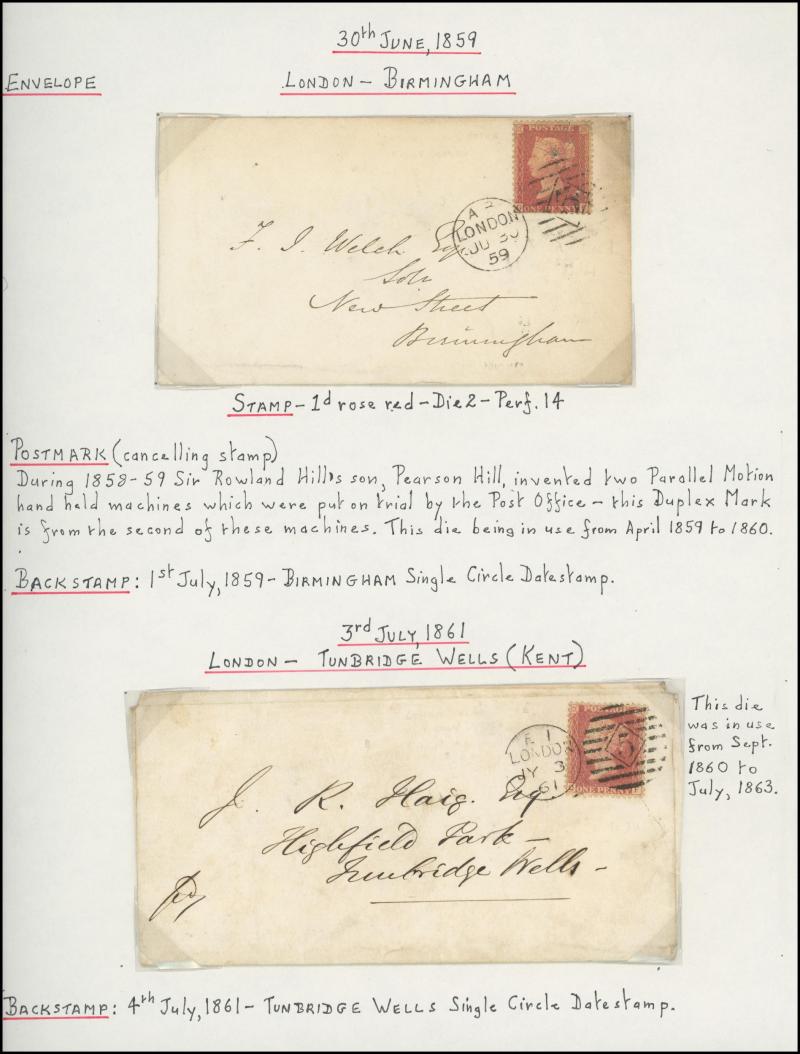 30th June, 1859
Envelope
London - Birmingham
POSTAGE
ONE PENNY
A 2
LONDON
JU 30
59
F. J. Welch Esq
Solr
New Street
Birmingham
Stamp - 1d rose red - Die 2 - Perf. 14
Postmark (cancelling stamp)
During 1858-59 Sir Rowland Hill's son, Pearson Hill, invented two Parallel Motion
hand held machines which were put on trial by the Post Office - this Duplex Mark
is from the second of these machines. This die being in use from April 1859 to 1860.
Backstamp: 1st July, 1859 - Birmingham Single Circle Datestamp.
3rd July, 1861
London - Tunbridge Wells (Kent)
POSTAGE
ONE PENNY
LONDON
JY 3
61
5
This die
was in use
from Sept.
1860 to
July, 1863.
J. R. Haig. Esq
Highfield Park -
Tunbridge Wells -
Backstamp: 4th July, 1861 - Tunbridge Wells Single Circle Datestamp.